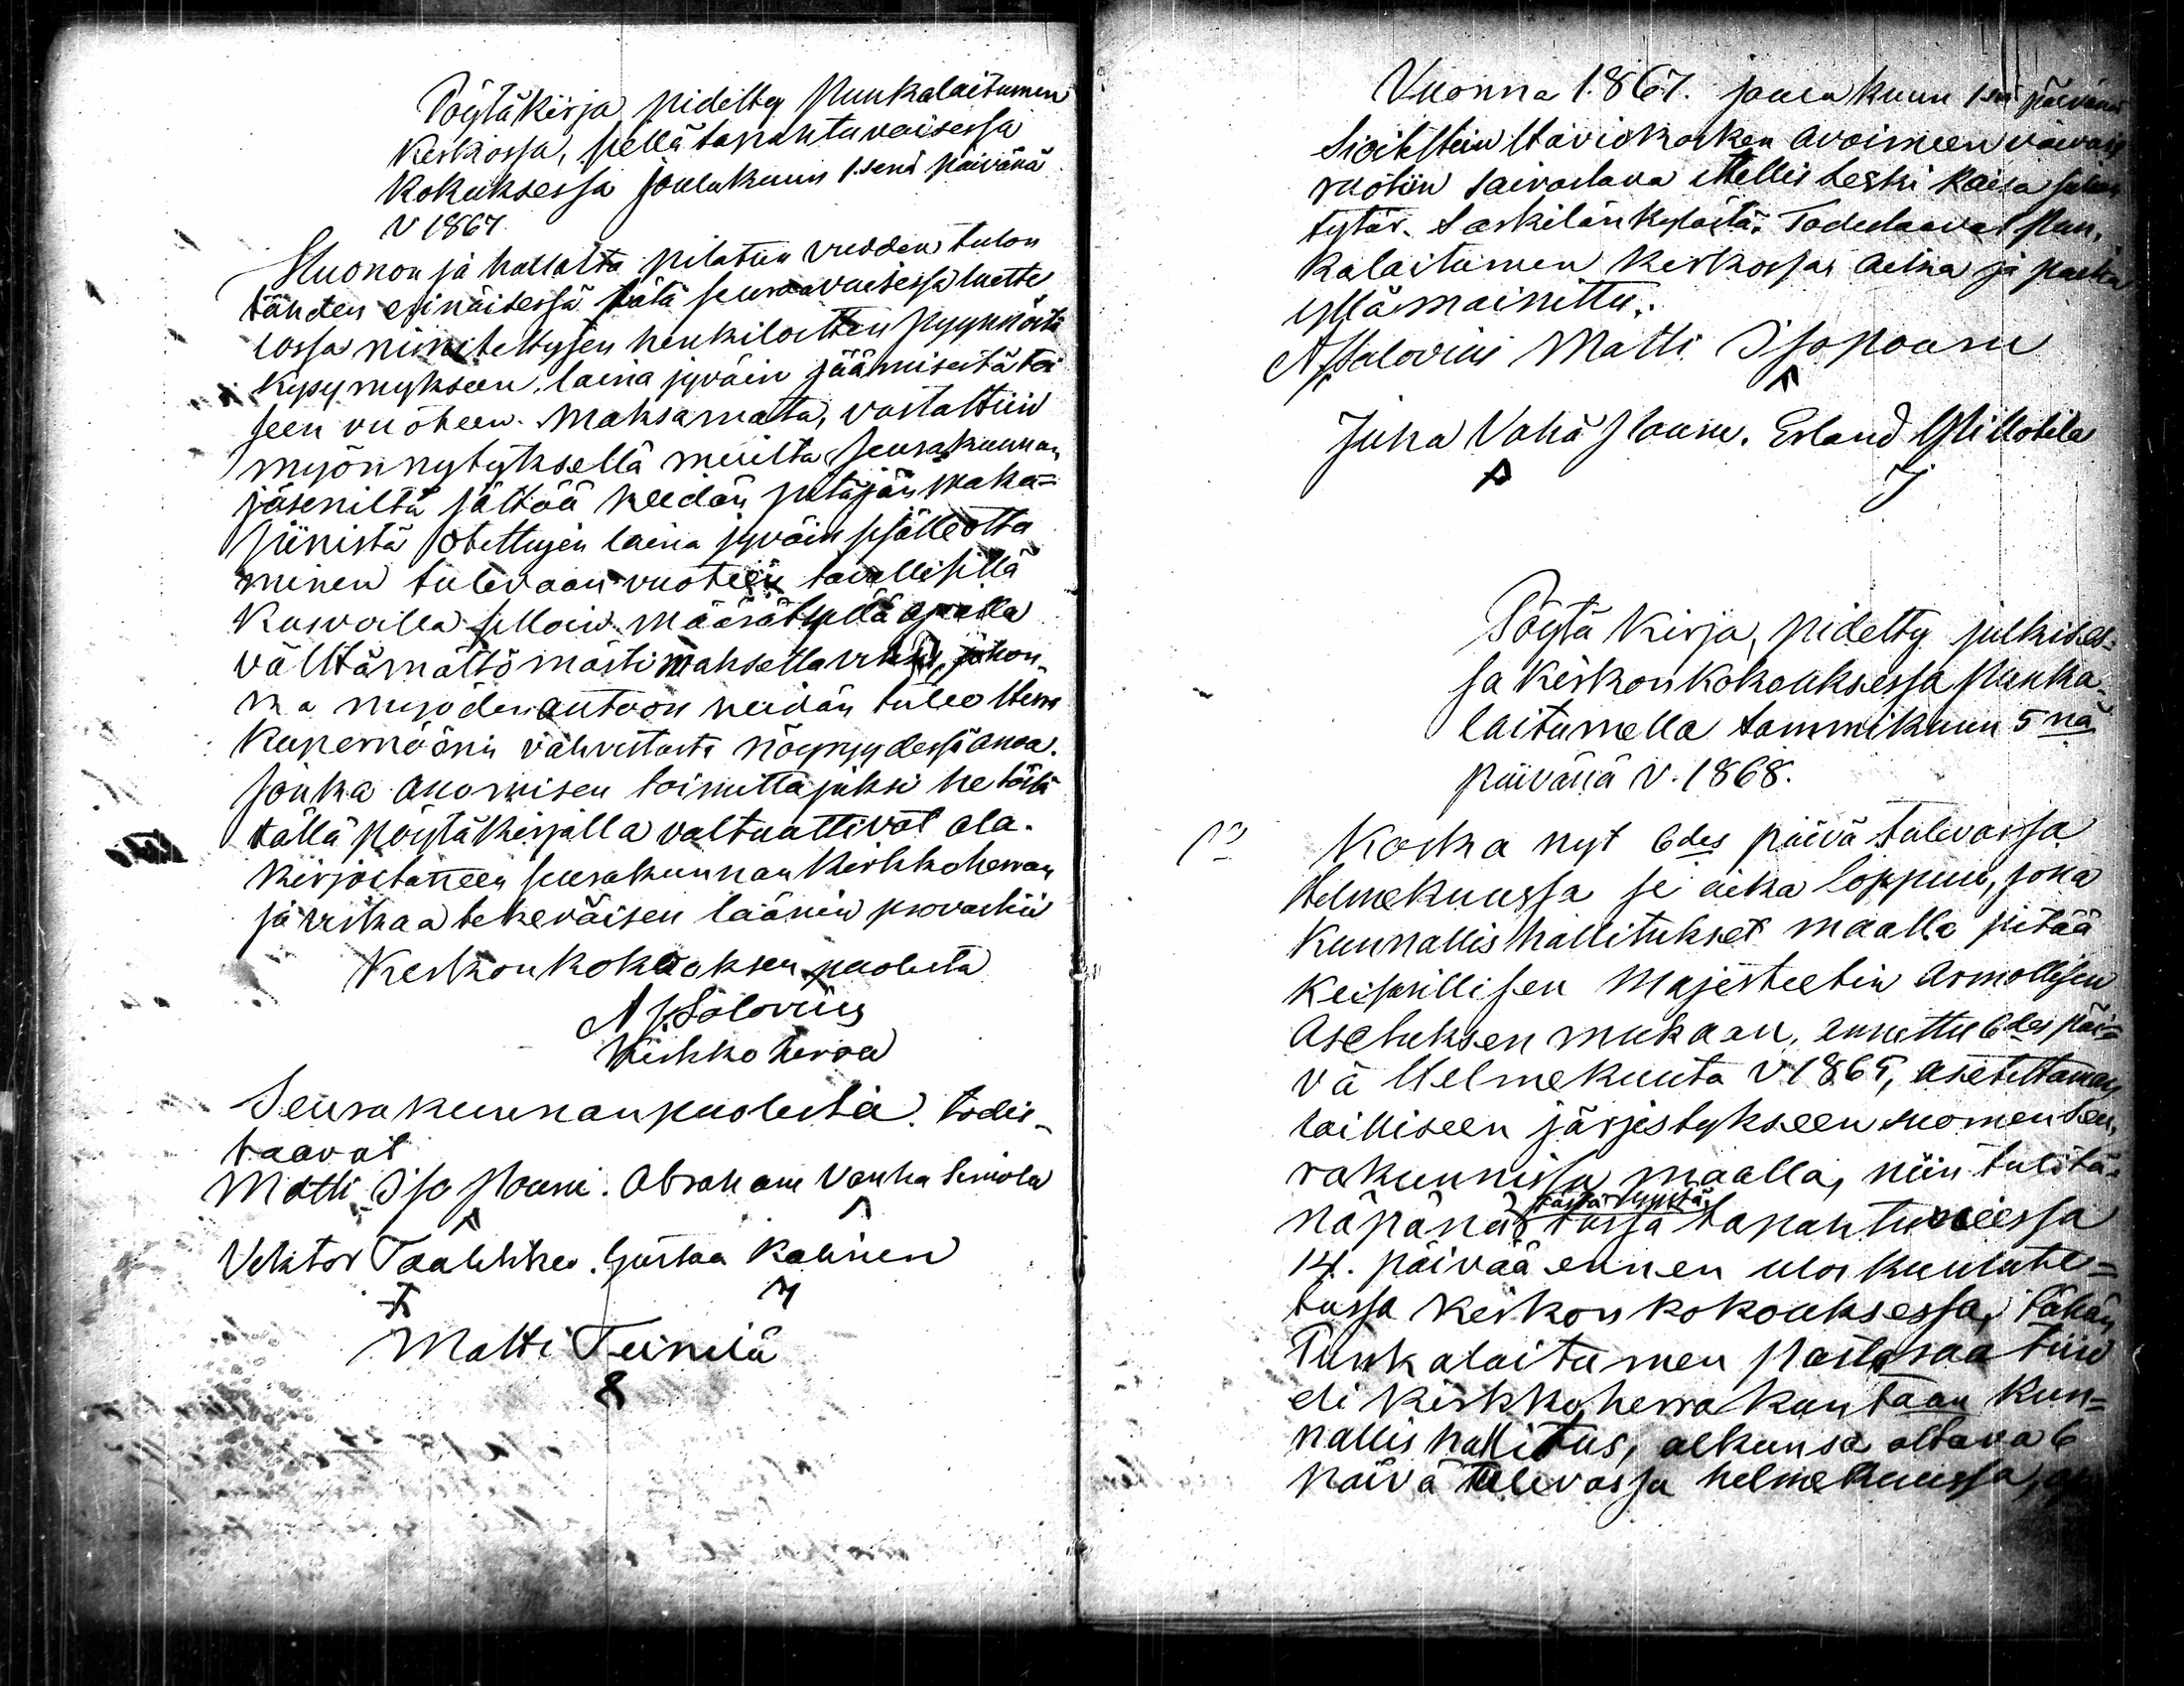 Pöytäkirja pidetty Punkalaitumen
Kirkossa, siellä tapahtuvaisessa
Kokouksessa joulukuun 1senä päivänä
V 1867.
Huonon ja hallalta pilatun vuoden tulon
tähden erinäisessä tätä seuraavaisessa luette
lossa nimitettyjen henkilöitten pyynnöstä
Kysymykseen, laina jyväin jäämisestä toi
seen vuoteen. maksamata, vastattiin
myönnytyksellä muilta seurakunnan
jäseniltä jättöä heidän pitäjän maka=
siinistä otettujen laina jyväin sisälleotta
minen tulevaan vuoteen tavallisillä
Kasvoilla silloin määrätyllä ajalla
välttämättömästi maksettavaksi, johon-
ka myöden antoon heidän tulee Herra
Kupernöörin vahvistusta nöyryydessä anoa.
Jonka anomisen toimittajaksi he tästä
tällä pöytäkirjalla valtuuttivat ala-
Kirjoittaneen seurakunnan Kirkkoherran
ja virkaa tekeväisen läänin provastin
Kirkonkokouksen puolesta
A F Salovius
Kirkkoherra
Seurakunnan puolesta. todis-
taavat
Matti Iso Pouru. Abraham Vanha Simola
Viktor Taahikka. Gustaa Kalinen
Matti Teimelä
Vuonna 1867. joulukuun 1snä päivänä
Sioitettiin Haviokosken avoimeen vaivais
ruotiin sairastava Itellis Leski Kaisa Juhan
tytär. Sarkilän kylästä. Todistaavat Pun,
kalaitumen kirkossa aeka ja paeka
yllämainittu.
A F Salovius Matti Iso pouru
Juha Vähä Pouru. Erland Yli Kotila
Pöytä Kirja, pidetty julkises-
sa kirkonkokouksessa Punka-
laitumella tammikuun 5nä
päivänä V. 1868.
1o Koska nyt 6des päivä tulevassa
Helmekuussa se aika loppuu, jona
Kunnallishallitukset maalla pitää
Keisarillisen Majesteetin Armollisen
Asetuksen mukaan, annettu 6des päi=
vä Helmekuuta V. 1865, asetettaman
lailliseen järjestykseen suomen seu,
rakunnissa maalla, niin tulitä-
näpänä tästä syystä tässä tapahtuvaiessa
14. päivää ennen ulos kuulute=
tussa kirkon kokouksessa, Tähän
Punkalaitumen Pastoraatiin
eli kirkkoherrakuntaan kun=
nallishallitus, alkunsa ottava 6
päivä tulevassa helmekuussa,